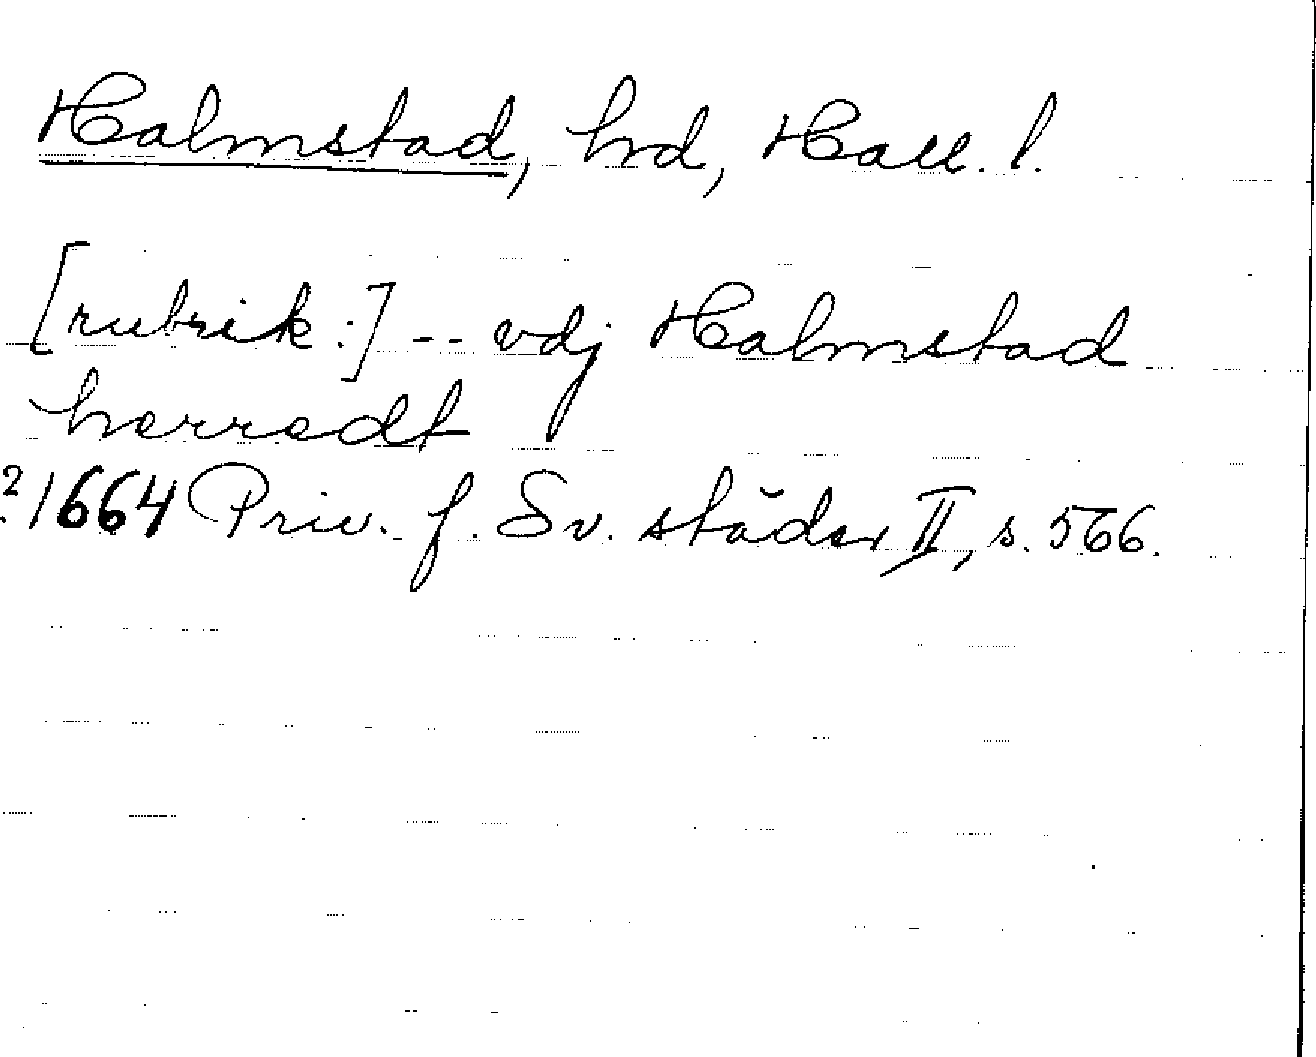 Halmstad, hrd, Hall. l.
[rubrik:] -- vdj Halmstad
herredt
2/1664 Priv. f. Sv. städer II, s. 566.